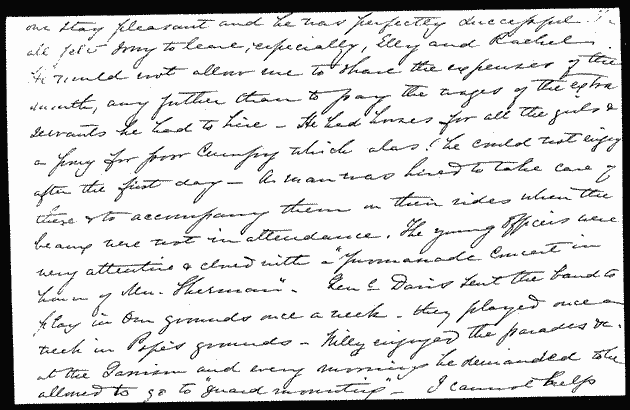 our stay pleasant and he was perfectly successful.
all felt sorry to leave, especially, Elly and Rachel
He would not allow me to share the expenses of the
month, any further than to pay the wages of the extra
servants he had to hire – He had horses for all the girls &
a pony for poor Cumpy which alas! he could not enjoy
after the first day – A man was hired to take care of
these & to accompany them on their rides when the
beaux were not in attendance. The young officers were
very attentive & closed with a "Promenade Concert in
honor of Mrs. Sherman". Genl. Davis sent the band to
play in our grounds once a week – they played once a
week in Pope's grounds – Willy enjoyed the parades &c.
at the Garrison and every morning he demanded to be
allowed to go to "guard mounting" – I cannot help